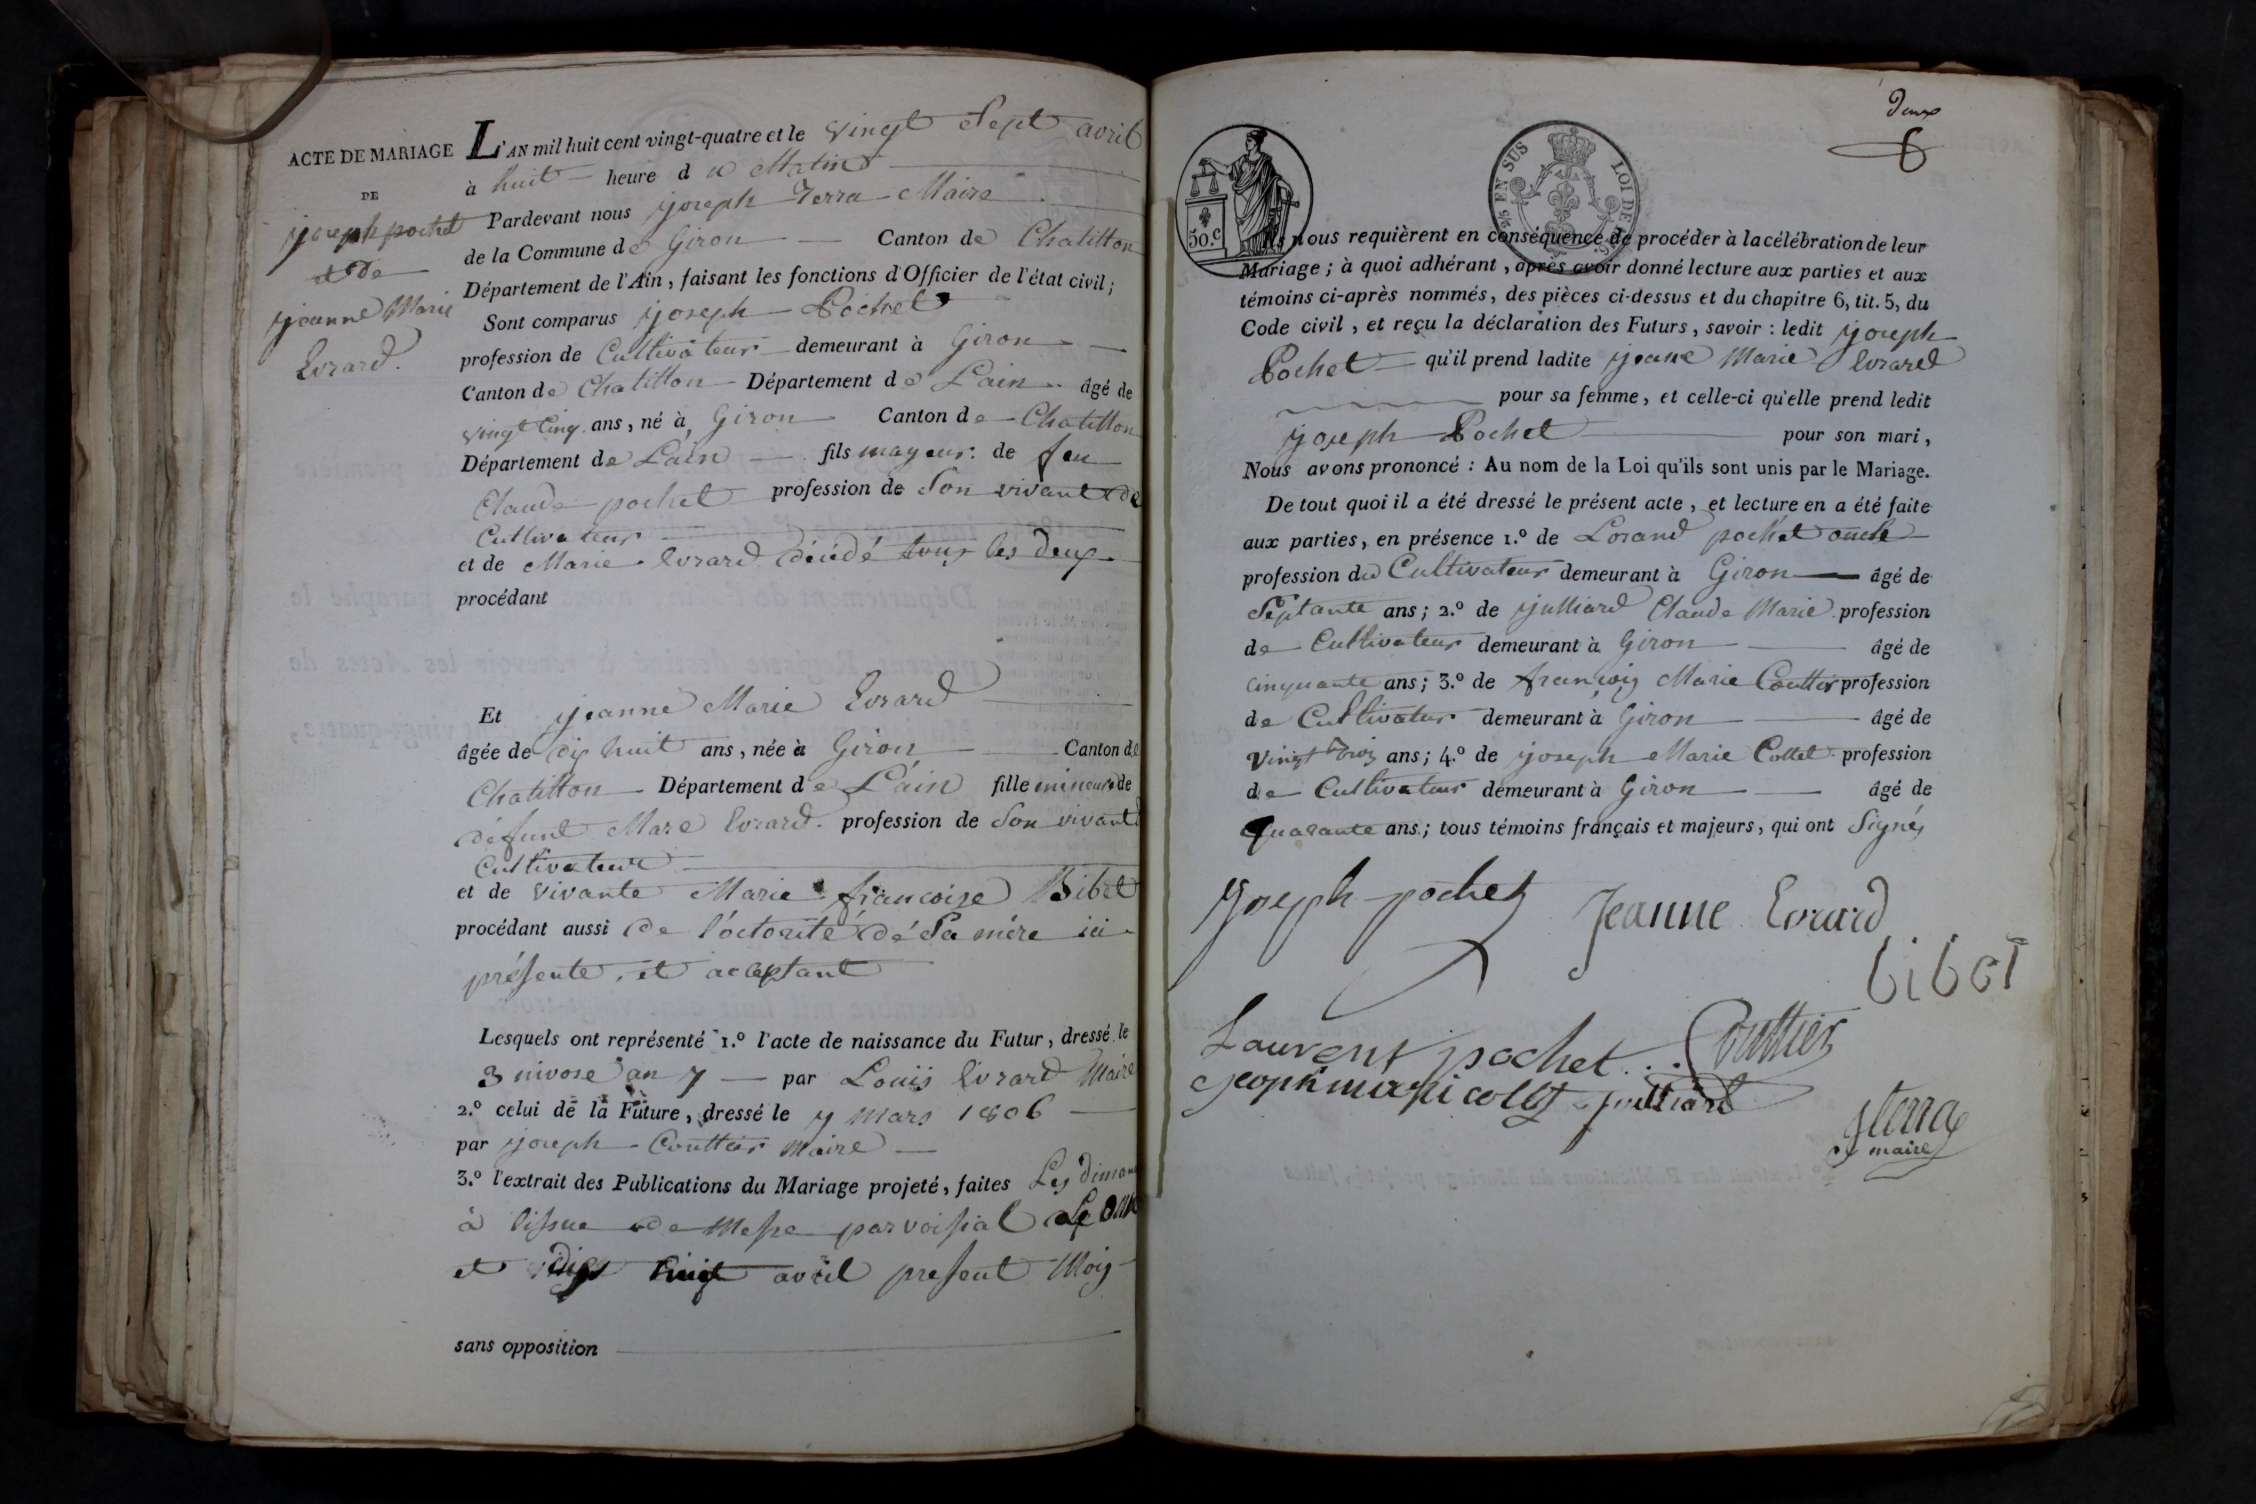 ACTE DE MARIAGE
DE
joseph pochet
et de
jeanne Marie
Evrard.
L'AN mil huit cent vingt-quatre et le vingt Sept avril
à huit heure du Matin
Pardevant nous joseph Terra Maire
de la Commune de Giron Canton de Chatillon
Département de l'Ain, faisant les fonctions d'Officier de l'état civil;
Sont comparus joseph Pochet
profession de Cultivateur demeurant à Giron
Canton de Chatillon Département de Lain âgé de
vingt Cinq ans, né à Giron Canton de Chatillon
Département de Lain fils mayeur de feu
Claude pochet profession de Son vivant de
Cultivateur
et de Marie Evrard décédé tous les deux
procédant
Et jeanne Marie Evrard
âgée de dix huit ans, née à Giron Canton de
Chatillon Département de L'ain fille mineure de
défunt Marc Evrard profession de Son vivant
Cultivateur
et de vivante Marie francoise Bibet
procédant aussi de l'octorité dé Sa mére ici
présente et acceptant
Lesquels ont représenté 1.º l'acte de naissance du Futur, dressé le
3 nivose an 7 par Louis Evrard Maire
2.º celui de la Future, dressé le 7 mars 1806
par joseph Couttier maire
3.º l'extrait des Publications du Mariage projeté, faites Les
à lissue de Messe parvoissial
et avril present Mois
sans opposition
Deux
6
50.c
EN SUS
LOI DE
Ils nous requièrent en conséquence de procéder à la célébration de leur
Mariage; à quoi adhérant, après avoir donné lecture aux parties et aux
témoins ci-après nommés, des pièces ci-dessus et du chapitre 6, tit. 5, du
Code civil, et reçu la déclaration des Futurs, savoir: ledit joseph
Pochet qu'il prend ladite jeane Marie Evrard
pour sa femme, et celle-ci qu'elle prend ledit
joseph Pochet pour son mari,
Nous avons prononcé: Au nom de la Loi qu'ils sont unis par le Mariage.
De tout quoi il a été dressé le présent acte, et lecture en a été faite
aux parties, en présence 1.º de Lorand pochet oncle
profession du Cultivateur demeurant à Giron âgé de
Septante ans; 2.º de julliard Claude Marie profession
de Cultivateur demeurant à Giron âgé de
cinquante ans; 3.º de françois Marie Couttier profession
de Cultivateur demeurant à Giron âgé de
vingt trois ans; 4.º de joseph Marie Collet profession
de Cultivateur demeurant à Giron âgé de
quarante ans; tous témoins français et majeurs, qui ont Signés
joseph pochet
Jeanne Evrard
bibet
Laurent pochet
Couttier
collet
julliard
jterra
maire